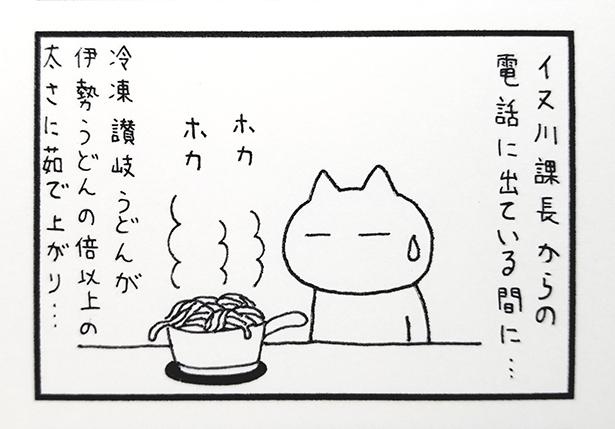 イヌ川課長からの
電話に出ている間に…
ホカ
ホカ
冷凍讃岐うどんが
伊勢うどんの倍以上の
太さに茹で上がり…